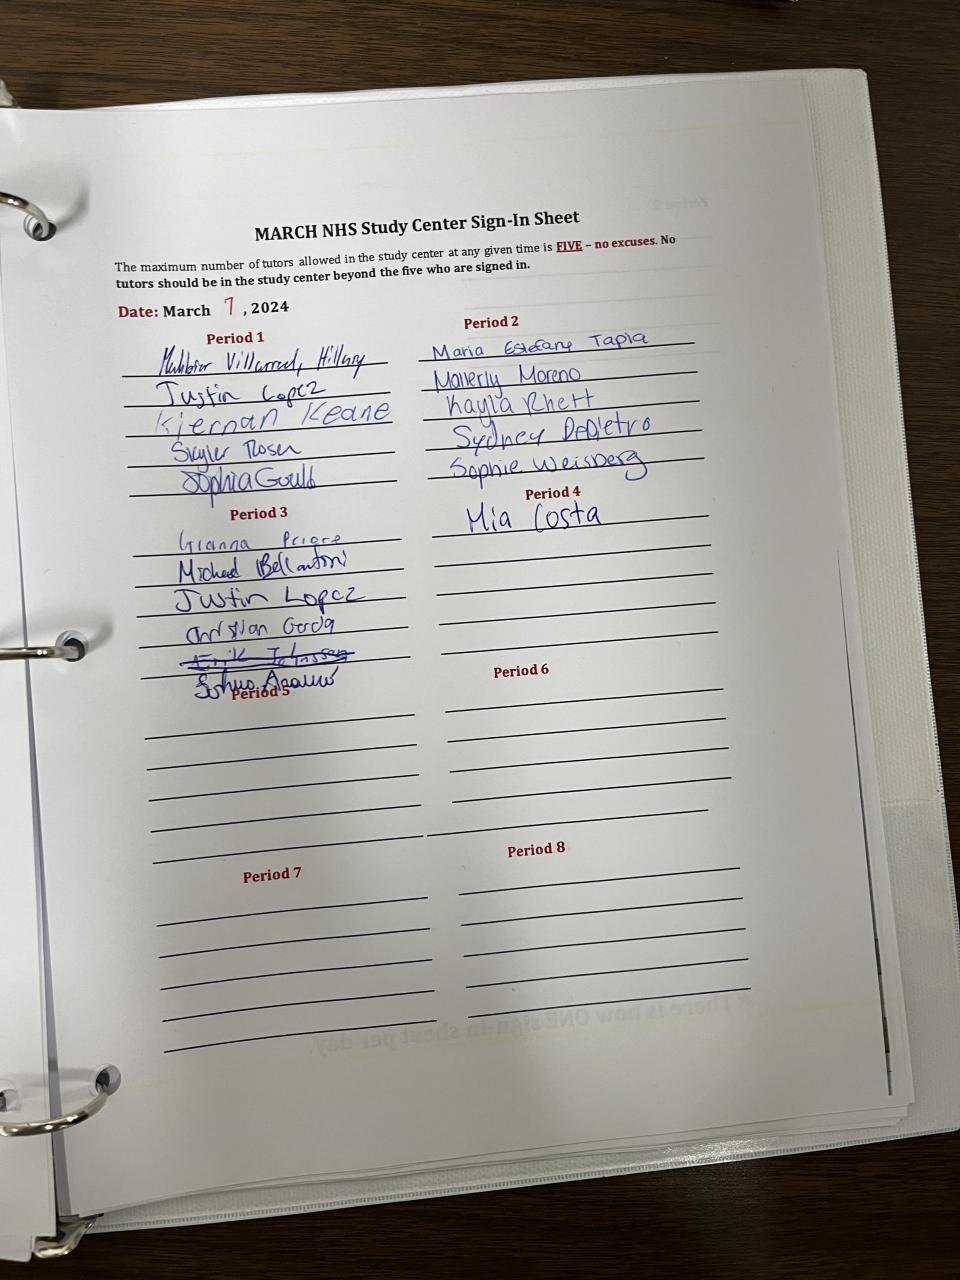 MARCH NHS Study Center Sign-In Sheet
The maximum number of tutors allowed in the study center at any given time is FIVE – no excuses. No
tutors should be in the study center beyond the five who are signed in.
Date: March 7, 2024
Period 1
Villarreal, Hillary
Justin Lopez
Kiernan Keane
Skyler Rosen
Sophia Gould
Period 2
Maria Estefany Tapia
Mallerly Moreno
Kayla Rhett
Sydney DePietro
Sophie Weisberg
Period 3
Gianna Priore
Michael Bellantoni
Justin Lopez
Christian Cerda
Erik Johnssen
Period 4
Mia Costa
Period 5
Period 6
Period 7
Period 8
There is now ONE sign-in sheet per day.
Period 9